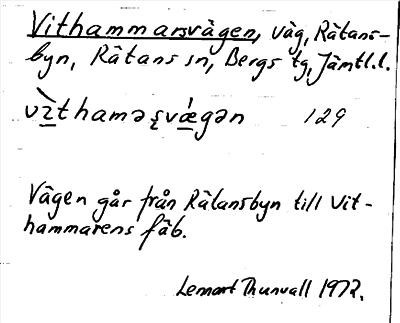 Vithammarsvägen, väg, Rätans-
byn, Rätans sn, Bergs tg, Jämtl.l.
vìthaməʂvǽgən 129
Vägen går från Rätansbyn till Vit-
hammarens fäb.
Lennart Thunvall 1972.